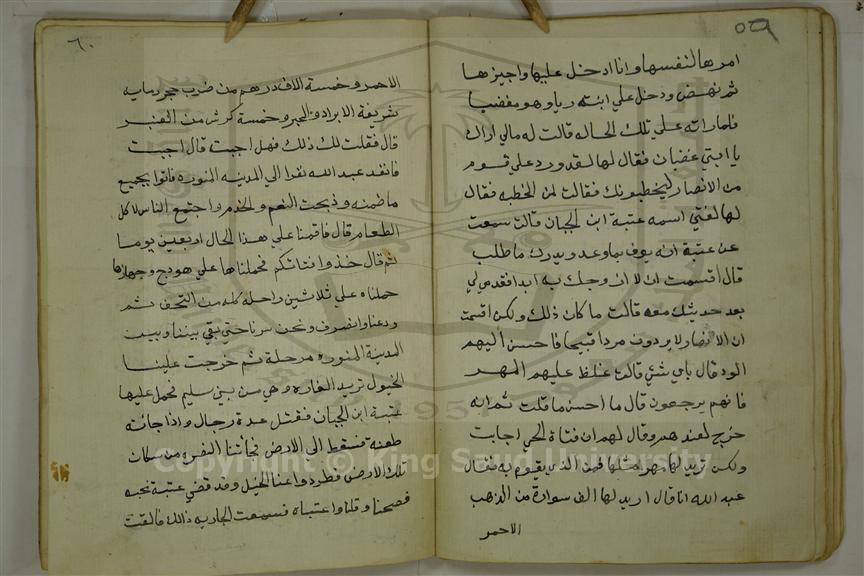 ٥٩
امرها لنفسها وانا ادخل عليها واجيزها
ثم نهض ودخل علي ابنته ريا وهو مغضبا
فلما راته علي تلك الحاله قالت له مالي اراك
يا ابتي غضبان فقال لها لقد ورد علي قوم
من الانصار ليخطبونك فقالت لمن الخطبه فقال
لها لفتي اسمه عتبة ابن الجبان قالت سمعت
عن عتبة انه يوف بما وعد ويدرك ما طلب
قال اقسمت ان لا ازوجك به ابدا فقد مي لي
بعد حديثك معه قالت ما كان ذلك ولكن اقسمت
ان الانصار لا يردون مردا قبيحا فاحسن اليهم
الود قال باي شئ قالت غلظ عليهم المهر
فانهم يرجعون قال ما احسن ما قلت ثم انه
خرج لعندهم وقال لهم ان فتاة الحي اجابت
ولكن تريد لها مهر مثلها فمن الذي يقوم به فقال
عبد الله انا قال اريد لها الف سوارة من الذهب
الاحمر
٦٠
الاحمر وخمسة الاف درهم من ضرب حجر ومايه
شريفة الابراد والحبر وخمسة كرش من العنبر
قال فقلت لك ذلك فهل اجبت قال اجبت
فانفد عبد الله نفرا الي المدينه المنوره فاتوا بجميع
ما ضمنه وذبحت النعم والخدم واجتمع الناس لاكل
الطعام قال فاقمنا علي هذا الحال اربعين يوما
ثم قال خذوا فتاتكم فحملناها علي هودج وجهازها
حملناه علي ثلاثين راحله كله من التحف ثم
ودعنا وانصرف ونحن سرنا حتي بقي بيننا وبين
المدينة المنوره مرحلة ثم خرجت علينا
الخيول تريد الغاره وهي من بني سليم فحمل عليها
عتبة ابن الجبان فقتل عدة رجال واذا جائته
طعنه فسقط الي الارض فجائتنا النصره من سكان
تلك الارض وطردوا عنا الخيل وقد قضي عتبة نحبه
فصحنا وقلنا واعتباه فسمعت الجاريه ذالك فالقت
Copyright © King Saud University
1957